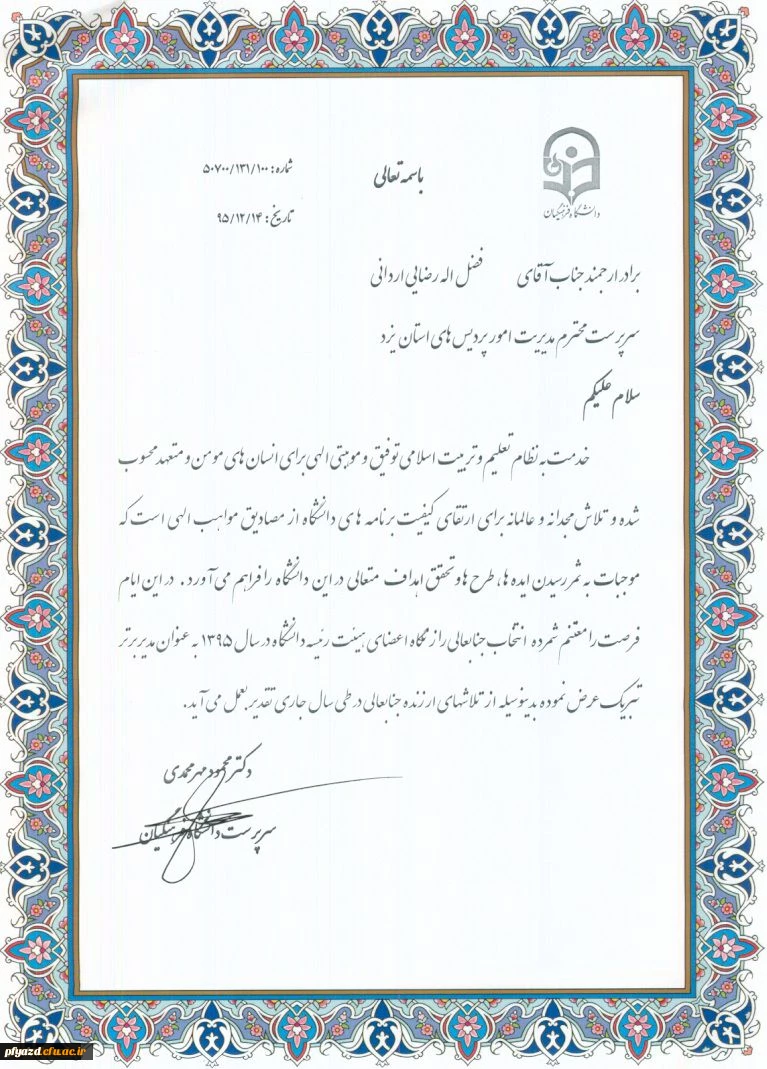 باسمه تعالی
دانشگاه فرهنگیان
شماره: ۵۰۷۰۰/۱۳۱/۱۰۰
تاریخ: ۹۵/۱۲/۱۴
برادر ارجمند جناب آقای فضل اله رضایی اردانی
سرپرست محترم مدیریت امور پردیس های استان یزد
سلام علیکم
خدمت به نظام تعلیم و تربیت اسلامی توفیق و موهبتی الهی برای انسان های مومن و متعهد محسوب
شده و تلاش مجدانه و عالمانه برای ارتقای کیفیت برنامه های دانشگاه از مصادیق مواهب الهی است که
موجبات به ثمر رسیدن ایده ها، طرح ها و تحقق اهداف متعالی در این دانشگاه را فراهم می آورد. در این ایام
فرصت را مغتنم شمرده انتخاب جنابعالی را از نگاه اعضای هیئت رئیسه دانشگاه در سال ۱۳۹۵ به عنوان مدیر برتر
تبریک عرض نموده بدینوسیله از تلاشهای ارزنده جنابعالی در طی سال جاری تقدیر بعمل می آید.
دکتر محمود مهرمحمدی
سرپرست دانشگاه فرهنگیان
pfyazd.cfu.ac.ir